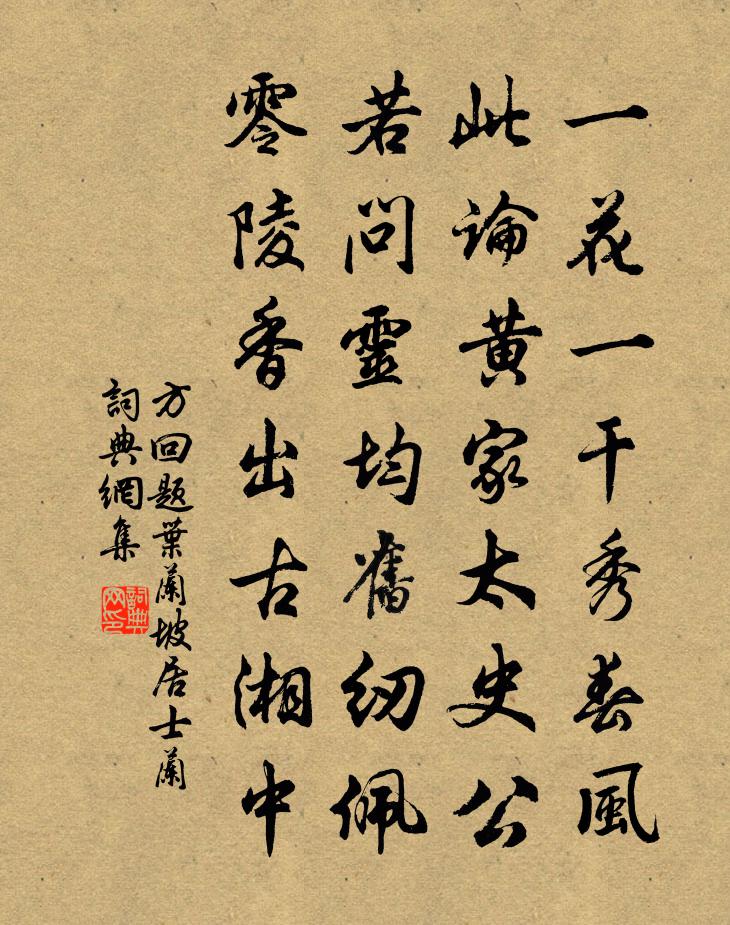 一花一干秀春風
此論黃家太史公
若問靈均舊紉佩
零陵香出古湘中
方回題葉蘭坡居士蘭
詞典網集
詞典网印